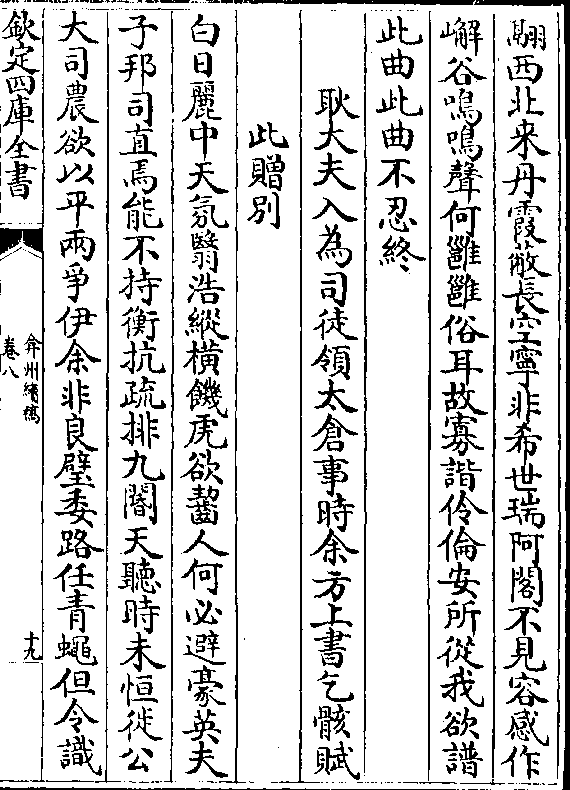 翩西北来丹霞蔽長空寧非希世瑞阿閣不見容感作
嶰谷鳴鳴聲何雝雝俗耳故寡諧伶倫安所從我欲譜
此曲此曲不忍終
耿大夫入為司徒領太倉事時余方上書乞骸賦
此贈別
白日麗中天氛翳浩縱橫饑虎欲齧人何必避豪英夫
子邦司直焉能不持衡抗疏排九閽天聽時未恒徙公
大司農欲以平兩爭伊余非良璧委路任青蠅但令識
欽定四庫全書
弇州續稿
卷八
十九